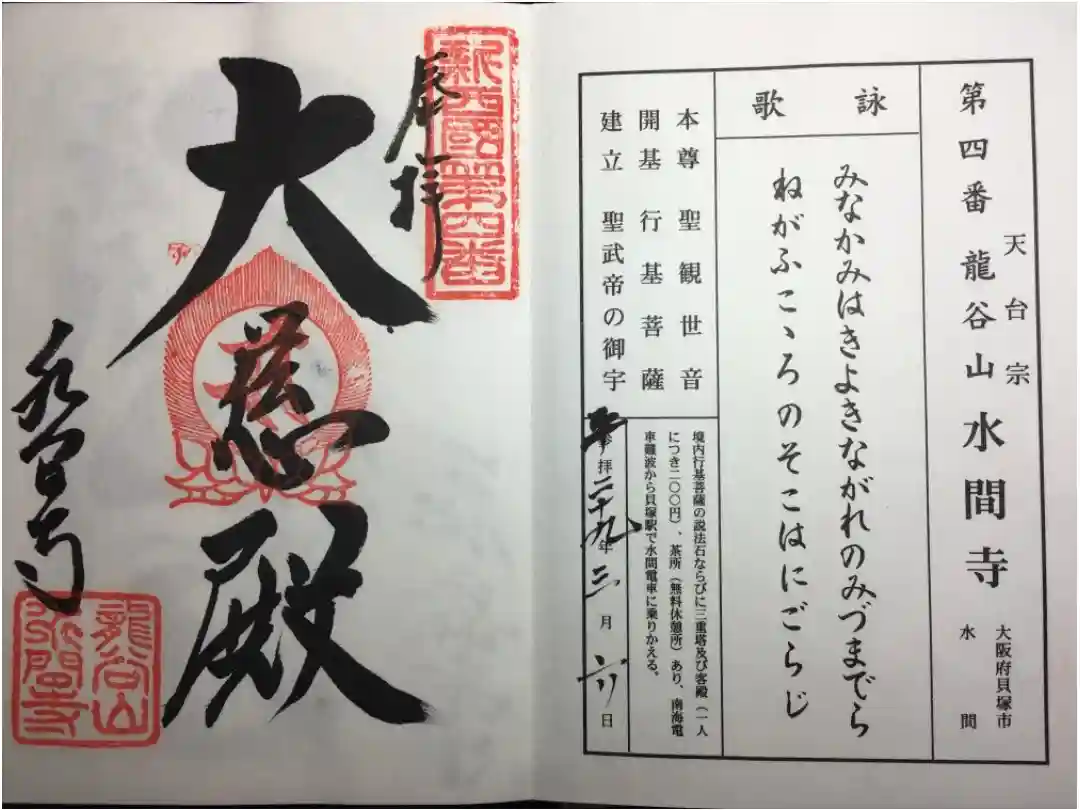 第四番 龍谷山 水間寺
天台宗
大阪府貝塚市
水間
詠歌
みなかみはきよきながれのみづまでら
ねがふこゝろのそこはにごらじ
本尊 聖観世音
開基 行基菩薩
建立 聖武帝の御宇
境内行基菩薩の説法石ならびに三重塔及び客殿(一人
につき二〇〇円)、茶所(無料休憩所)あり、南海電
車難波から貝塚駅で水間電車に乗りかえる。
参拝二十九年三月六日
新西國第四番
奉拝
大慈殿
水間寺
龍谷山
水間寺